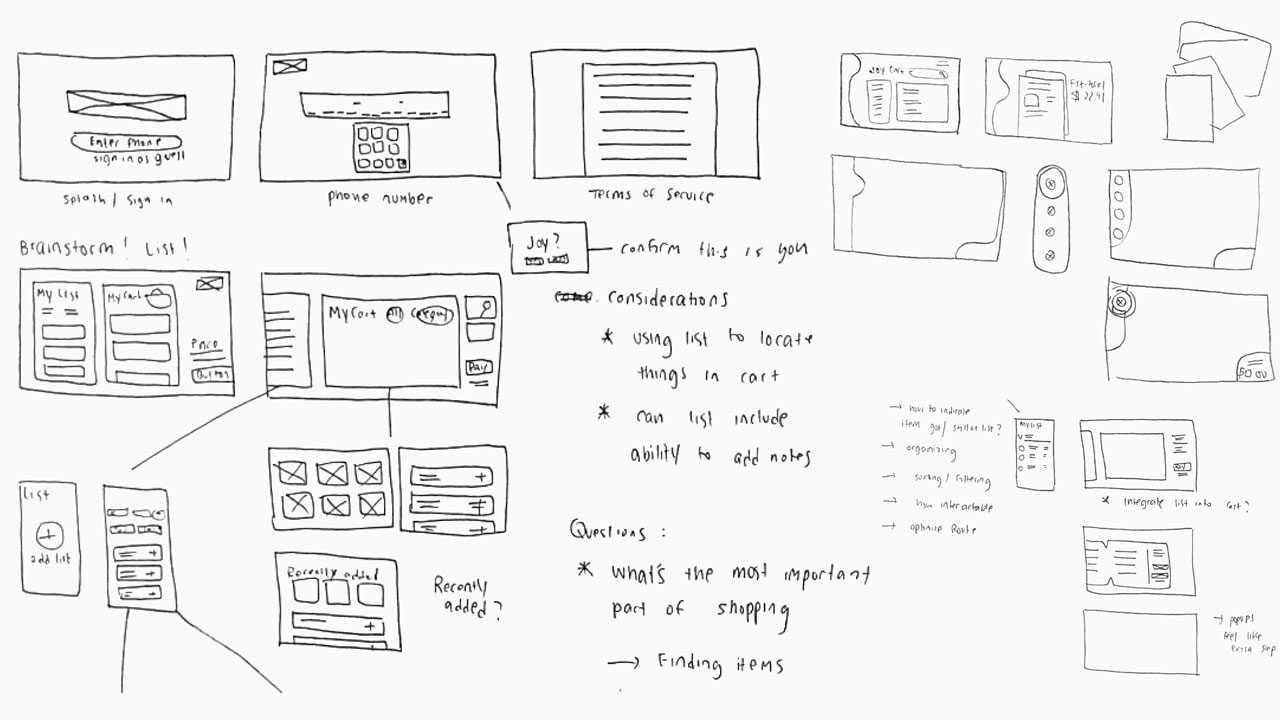 Enter phone
sign in as guest
splash / sign in
phone number
Terms of Service
Brainstorm! List!
Joy?
confirm this is you
My List
My Cart
Price
Button
My Cart
All
Category
Pay
considerations
* using list to locate
things in cart
* can list include
ability to add notes
List
add list
Recently added
Recently
added?
Questions:
* What's the most important
part of shopping
→ Finding items
Joy Cart
Est. total
$ 22.41
$0.00
→ how to indicate
item got / still on list?
→ organizing
→ sorting / filtering
→ how interactable
→ optimize Route
My list
Pay
* integrate list into cart?
→ popups
feel like
extra step